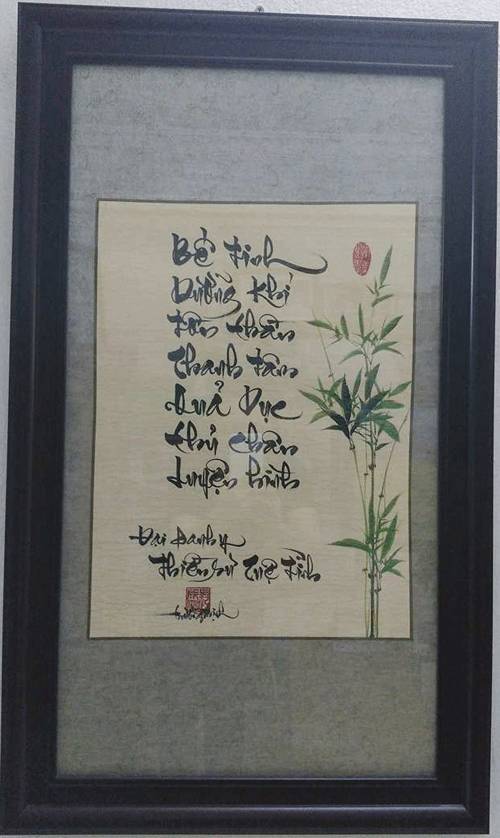 Bế tinh
Dưỡng Khí
tồn thần
thanh tâm
Quả Dục
thủ chân
luyện hình
Đại Danh y
thiền sư Tuệ Tĩnh